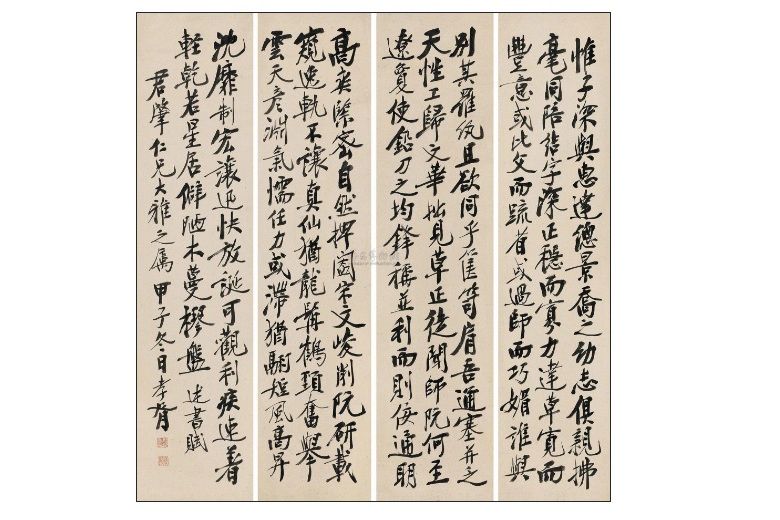 惟子深與思達德景喬之幼志俱親拂
毫同陪結字深正穩而寡力達草寬而
豐意或比父而疏首或過師而巧媚誰與
別其羅紈且欲同乎篋笥肩吾通塞并乏
天性工歸文華拙見草正徒聞師阮何至
遼敻使鉛刀之均鋒稱並利而則佞通明
高爽緊密自然捭闔宋文峻削阮研載
窺逸軌不讓真仙猶龍髯鶴頸奮舉
雲天彥淵氣懦任力或滯猶駟短風高昇
沈靡制宏讓迅快放誕可觀利疾速着
輕乾若星居僻陋木蔓樛盤 述書賦
君肇仁兄大雅之屬 甲子冬日孝胥